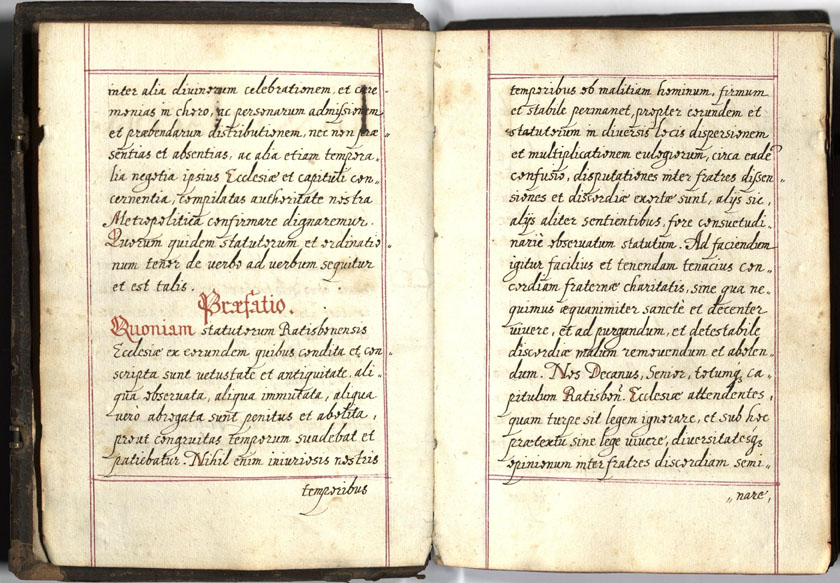 inter alia divinorum celebrationem, et cære„
monias in choro, ac personarum admissionem
et præbendarum distributionem, nec non præ„
sentias et absentias, ac alia etiam tempora„
lia negotia ipsius Ecclesiæ et capituli con„
cernentia, compilatas authoritate nostra
Metropolitica confirmare dignaremur.
Quorum quidem statutorum et ordinatio„
num tenor de verbo ad verbum sequitur
et est talis.
Præfatio.
Quoniam statutorum Ratisbonensis
Ecclesiæ ex eorundem quibus condita et con„
scripta sunt vetustate et antiquitate, ali„
qua observata, aliqua immutata, aliqua
verò abrogata sunt penitus et abolita,
prout congruitas temporum suadebat et
patiebatur. Nihil enim iniuriosis nostris
temporibus
temporibus ob malitiam hominum, firmum
et stabile permanet, propter eorundem et
statutorum in diversis locis dispersionem
et multiplicationem eulogiorum, circa eadē
confusio, disputationes inter fratres dissen„
siones et discordiæ exortæ sunt, alijs sic,
alijs aliter sentientibus, fore consuetudi„
nariè observatum statutum. Ad faciendum
igitur facilius et tenendam tenacius con„
cordiam fraternæ charitatis, sine qua ne„
quimus æquanimiter sanctè et decenter
vivere, et ad purgandum, et detestabile
discordiæ malum removendum et abolen„
dum. Nos Decanus, Senior, totumq̃ ca„
pitulum Ratisbon̄. Ecclesiæ attendentes,
quam turpe sit legem ignorare, et sub hoc
prætextu sine lege vivere, diversitatesq̃
opinionum inter fratres discordiam semi„
„nare,